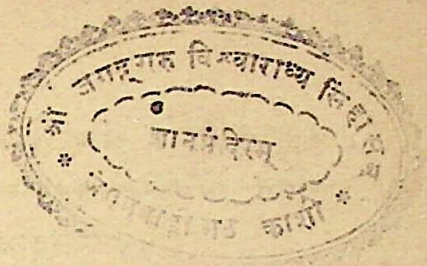 श्री जगद्गुरु विश्वाराध्य सिंहासन
ज्ञानमंदिरम्
काशी